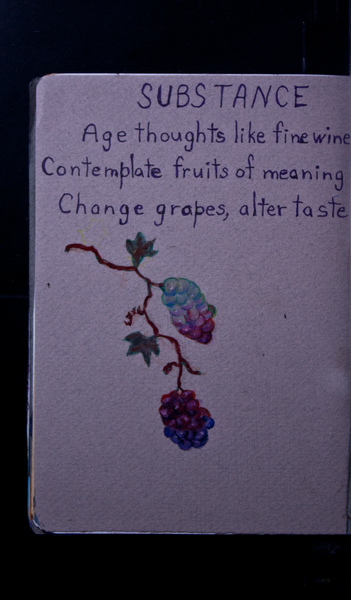 SUBSTANCE
Age thoughts like fine wine
Contemplate fruits of meaning
Change grapes, alter taste